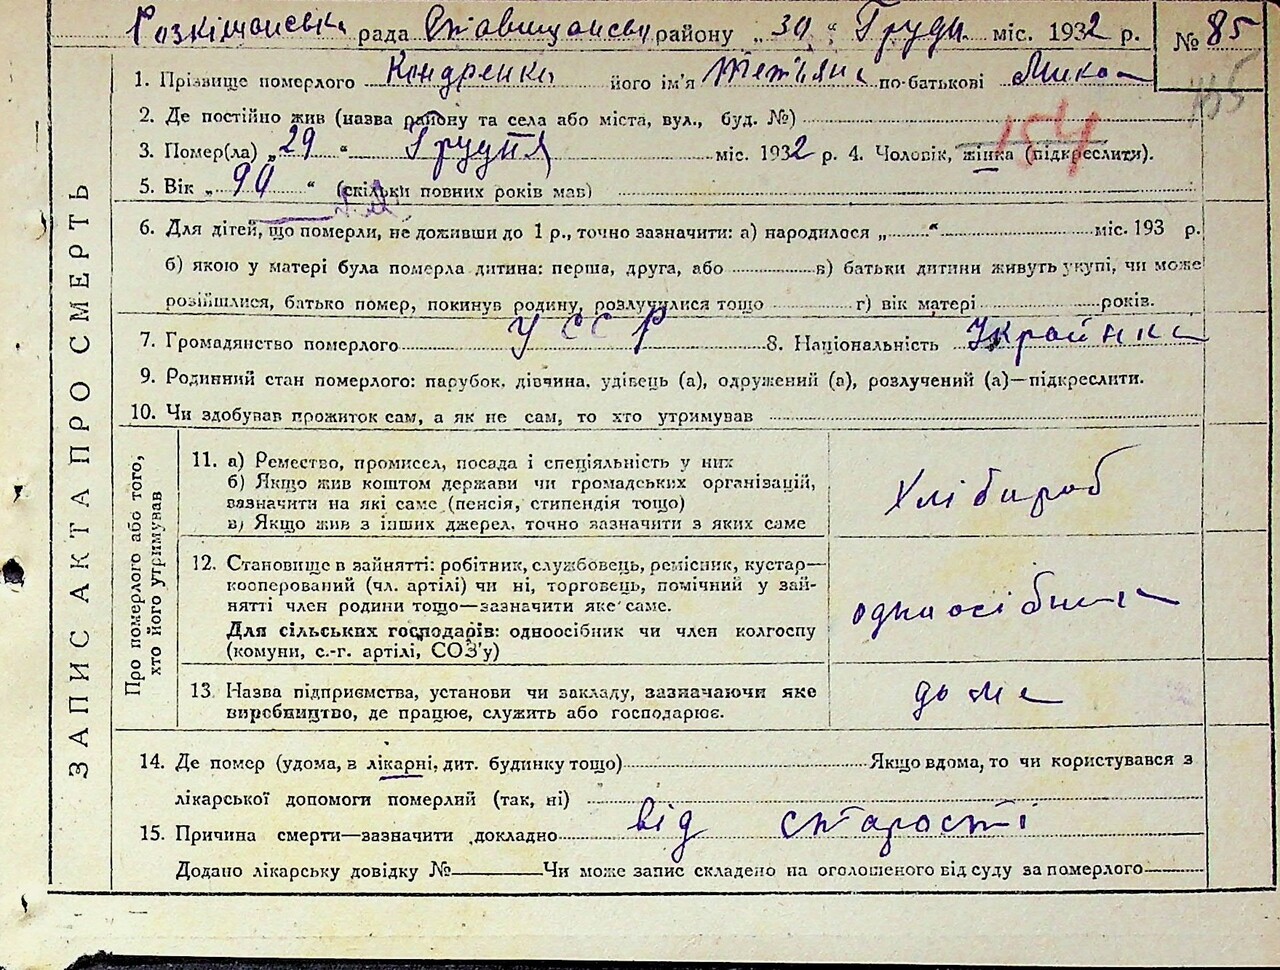 Розкішанська рада Ставищансь району „30“ Грудн міс. 1932 р. № 85
1. Прізвище померлого Кондренко його ім'я Тетяна по-батькові Мико
2. Де постійно жив (назва району та села або міста, вул., буд. №)
154
3. Помер(ла) „29“ Грудня міс. 1932 р. 4. Чоловік, жінка (підкреслити).
5. Вік „90“ (скільки повних років мав)
6. Для дітей, що померли, не доживши до 1 р., точно зазначити: а) народилося „ “ міс. 193 р.
б) якою у матері була померла дитина: перша, друга, або в) батьки дитини живуть укупі, чи може
розійшлися, батько помер, покинув родину, розлучилися тощо г) вік матері років.
7. Громадянство померлого УССР 8. Національність Українка
9. Родинний стан померлого: парубок, дівчина, удівець (а), одружений (а), розлучений (а)—підкреслити.
10. Чи здобував прожиток сам, а як не сам, то хто утримував
ЗАПИС АКТА ПРО СМЕРТЬ
Про померлого або того, хто його утримував
11. а) Ремество, промисел, посада і спеціяльність у них
б) Якщо жив коштом держави чи громадських організацій,
зазначити на які саме (пенсія, стипендія тощо)
в) Якщо жив з інших джерел, точно зазначити з яких саме
Хлібороб
12. Становище в зайнятті: робітник, службовець, ремісник, кустар—
кооперований (чл. артілі) чи ні, торговець, помічний у зай-
нятті член родини тощо—зазначити яке саме.
Для сільських господарів: одноосібник чи член колгоспу
(комуни, с.-г. артілі, СОЗ'у)
одноосібника
13. Назва підприємства, установи чи закладу, зазначаючи яке
виробництво, де працює, служить або господарює.
дома
14. Де помер (удома, в лікарні, дит. будинку тощо) Якщо вдома, то чи користувався з
лікарської допомоги померлий (так, ні)
15. Причина смерти—зазначити докладно від старости
Додано лікарську довідку № Чи може запис складено на оголошеного від суду за померлого